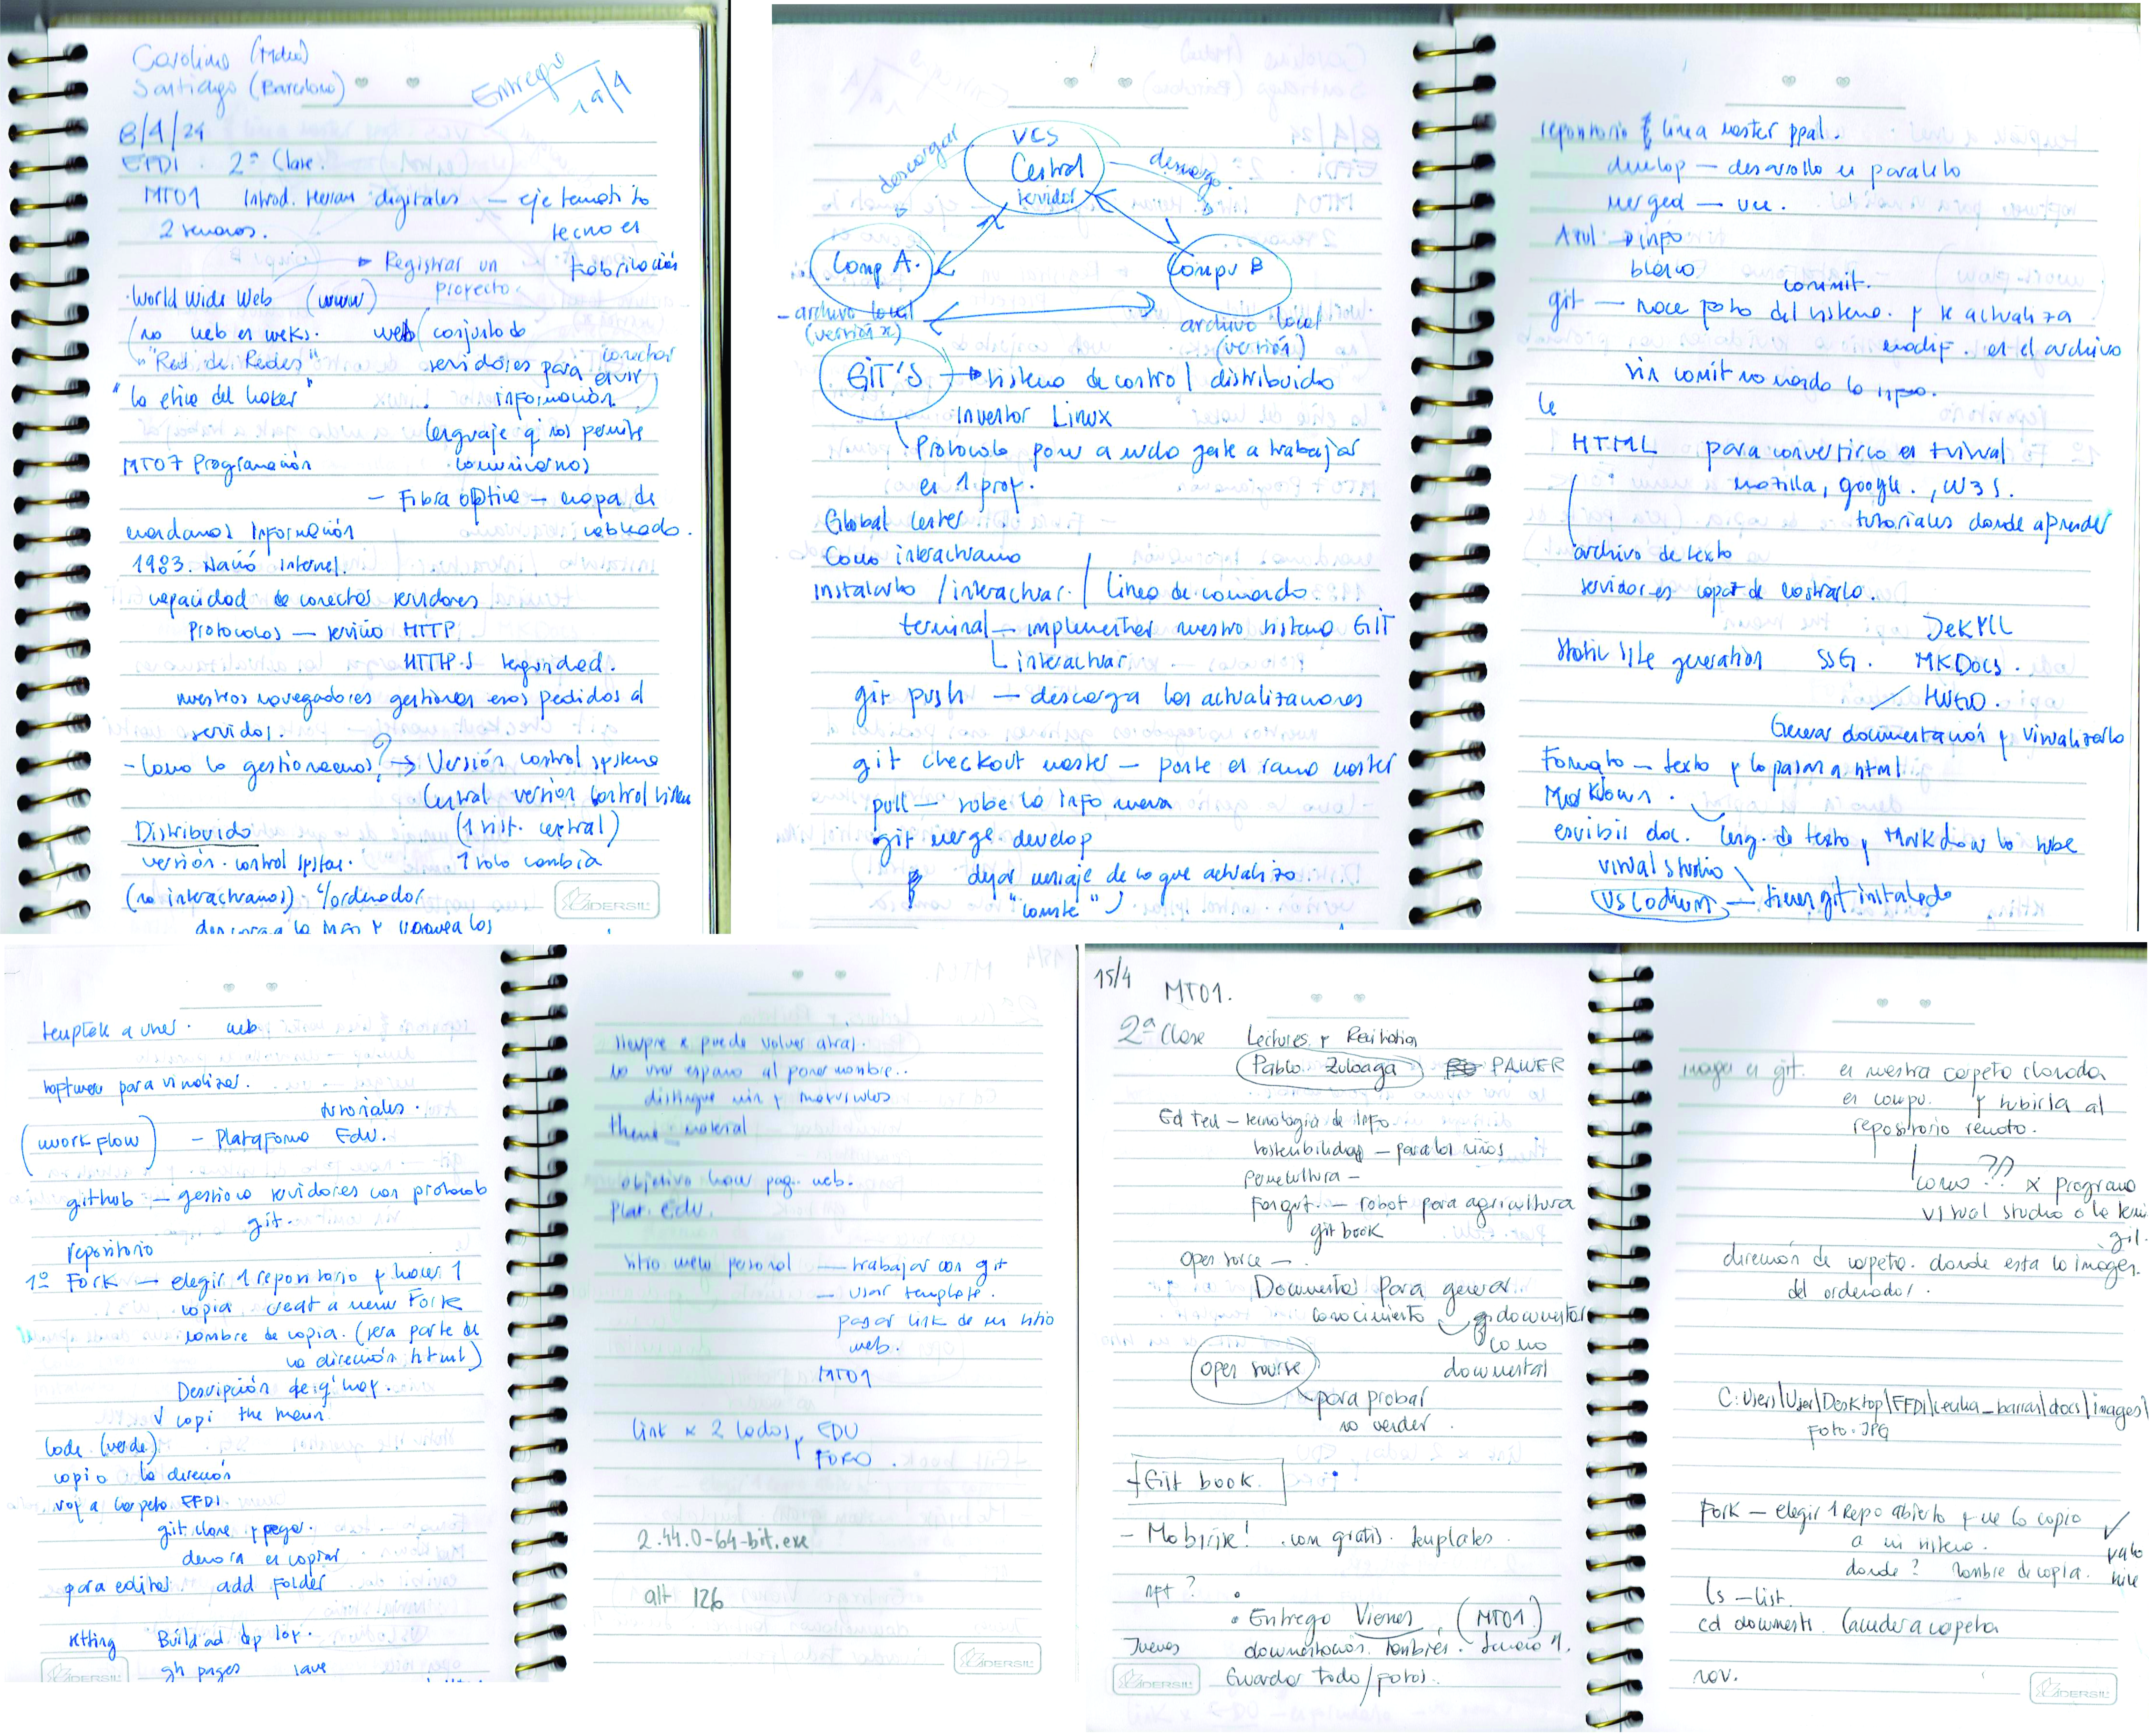 Carolina (Mdeo)
Santiago (Barcelona)
Entrega
1a/4
8/4/24
EFDI 2ª Clase.
MT01 Introd. Herram digitales — eje tematico
2 semanas. tecno en
Registrar un fabricación
proyecto.
World Wide Web (www)
(no web es weks. web (conjunto de
"Red de Redes" servidores para conectar
"La etica del haker" información
lenguaje q nos permite
MT07 Programación comunicarnos
— Fibra optica — mapa de
mandamos Información cableado.
1983. Nació internet.
capacidad de conectar servidores
Protocolos — servicio HTTP
HTTP-S seguridad.
nuestros navegadores gestionan esos pedidos al
servidor.
- Como lo gestionamos? → Versión control systeme
Central versión control sistem
Distribuido (1 sist. central)
versión control system. 1 solo cambia
(no interactuamos) c/ordenador
descarga la info y
VCS
Central
servidor
descargar
descarga
Comp A.
Compu B
- archivo local
(versión x)
archivo local
(versión)
GIT'S → sistema de control distribuido
inventor Linux
Protocolo pone a mucha gente a trabajar
en 1 proy.
Global center
Como interactuamo
instalarlo / interactuar. / Linea de comando
terminal — implementar nuestro sistema GIT
interactuar
git push — descarga las actualizaciones
git checkout master — ponte en rama master
pull — sube la info nueva
git merge develop
dejar mensaje de lo que actualizo
"comite"
repositorio linea master ppal.
develop — desarrollo en paralelo
merged — une.
Azul → info
blanco
commit.
git — hace foto del sistema. y se actualiza
modif. en el archivo
sin comit no manda la info.
le
HTML para convertirlo en visual
mozilla, google., W3S.
tutoriales donde aprender
archivo de texto
servidor es capaz de mostrarlo.
JeKYLL
Static site generation SSG. MKDocs.
HUGO.
Generar documentación y visualizarlo
Formato — texto y lo pasan a html
Markdown.
escribir doc. leng. de texto y Markdown lo sube
visual studio
VSCodium — tienen git instalado
templek a unes. web
software para visualizar.
tutoriales.
(work flow) — Plataforma Edu.
github — gestiona servidores con protocolo
git.
repositorio
1º Fork — elegir 1 repositorio y hacer 1
copia creat a new Fork
nombre de copia. (sera parte de
la dirección html)
Descripción de q' hay.
copi the main
Code (verde)
copio la dirección
voy a carpeta EFDI
git clone y pegar.
demora en copiar
para editar add Folder
setting Build ad dep
gh pages save
siempre x puede volver atras.
no usar espacio al poner nombre..
distingue min y mayusculas
theme_material
objetivo hacer pag. web.
Plat. Edu.
sitio web personal — trabajar con git
— usar template.
pegar link de mi sitio
web.
MT01
link x 2 lados, EDU
FORO.
2.44.0-64-bit.exe
alt 126
15/4
MT01.
2ª Clase Lectures y Recitation
Pablo Zuloaga PAWER
Ed Ted — tecnologia de info
sostenibilidad — para los niños
permacultura —
Forgut. — robot para agricultura
git book
open sorce — .
Documentos para generar
conocimiento
documentar
como
open sourse documental
para probar
no vender.
+Git book.
- Mobirise! .com gratis. templates.
nft?
• Entrega Viernes. (MT01)
Jueves documentación. también.
Guardar todo/fotos.
imagen en git. en nuestra carpeta clonada
en compu. y subirla al
repositorio remoto.
como ?? x programa
visual studio o la
git.
dirección de carpeta. donde esta la imagen.
del ordenador.
C:\Users\User\Desktop\EFDI\cecilia_barran\docs\images\
Foto.JPG
Fork — elegir 1 Repo abierto y me lo copio
a mi sistema.
donde? nombre de copia.
ls — list.
cd documents (acceder a carpeta
nov.